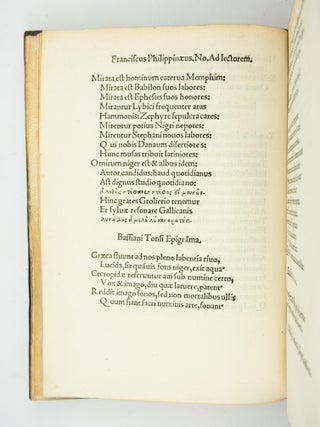 Franciscus Philippinæus, No, Ad lectorem,
Mirata est hominum caterua Memphim:
Mirata est Babilon suos labores:
Mirata est Ephesus suos honores:
Mirantur Lybici frequenter aras
Hammonis: Zephyre sepulcra cares:
Mirentur potius Nigri nepotes:
Mirentur Stephani nouos labores:
Qui nobis Danaum disertiores:
Hunc musas tribuit latiniores:
O mirum niger est ad idem
Autor candidus: haud quotidianus
Ast dignus studio quotidiano:
Hinc grates Grolierio tenemur
Et syluæ resonare Gallicanis
Bassiani Tonsi Epigrāma,
Græca fluunt ad nos pleno labentia riuo,
Lucida, sit quāuis fons niger, exit aqua
Cecropidæ referuntur aui sub numine certo,
Vox & imago, diu quæ latuere, patent
Reddit imago sonos, sed non mortalibus ullis
Quum sient sacri numinis arte, sonant